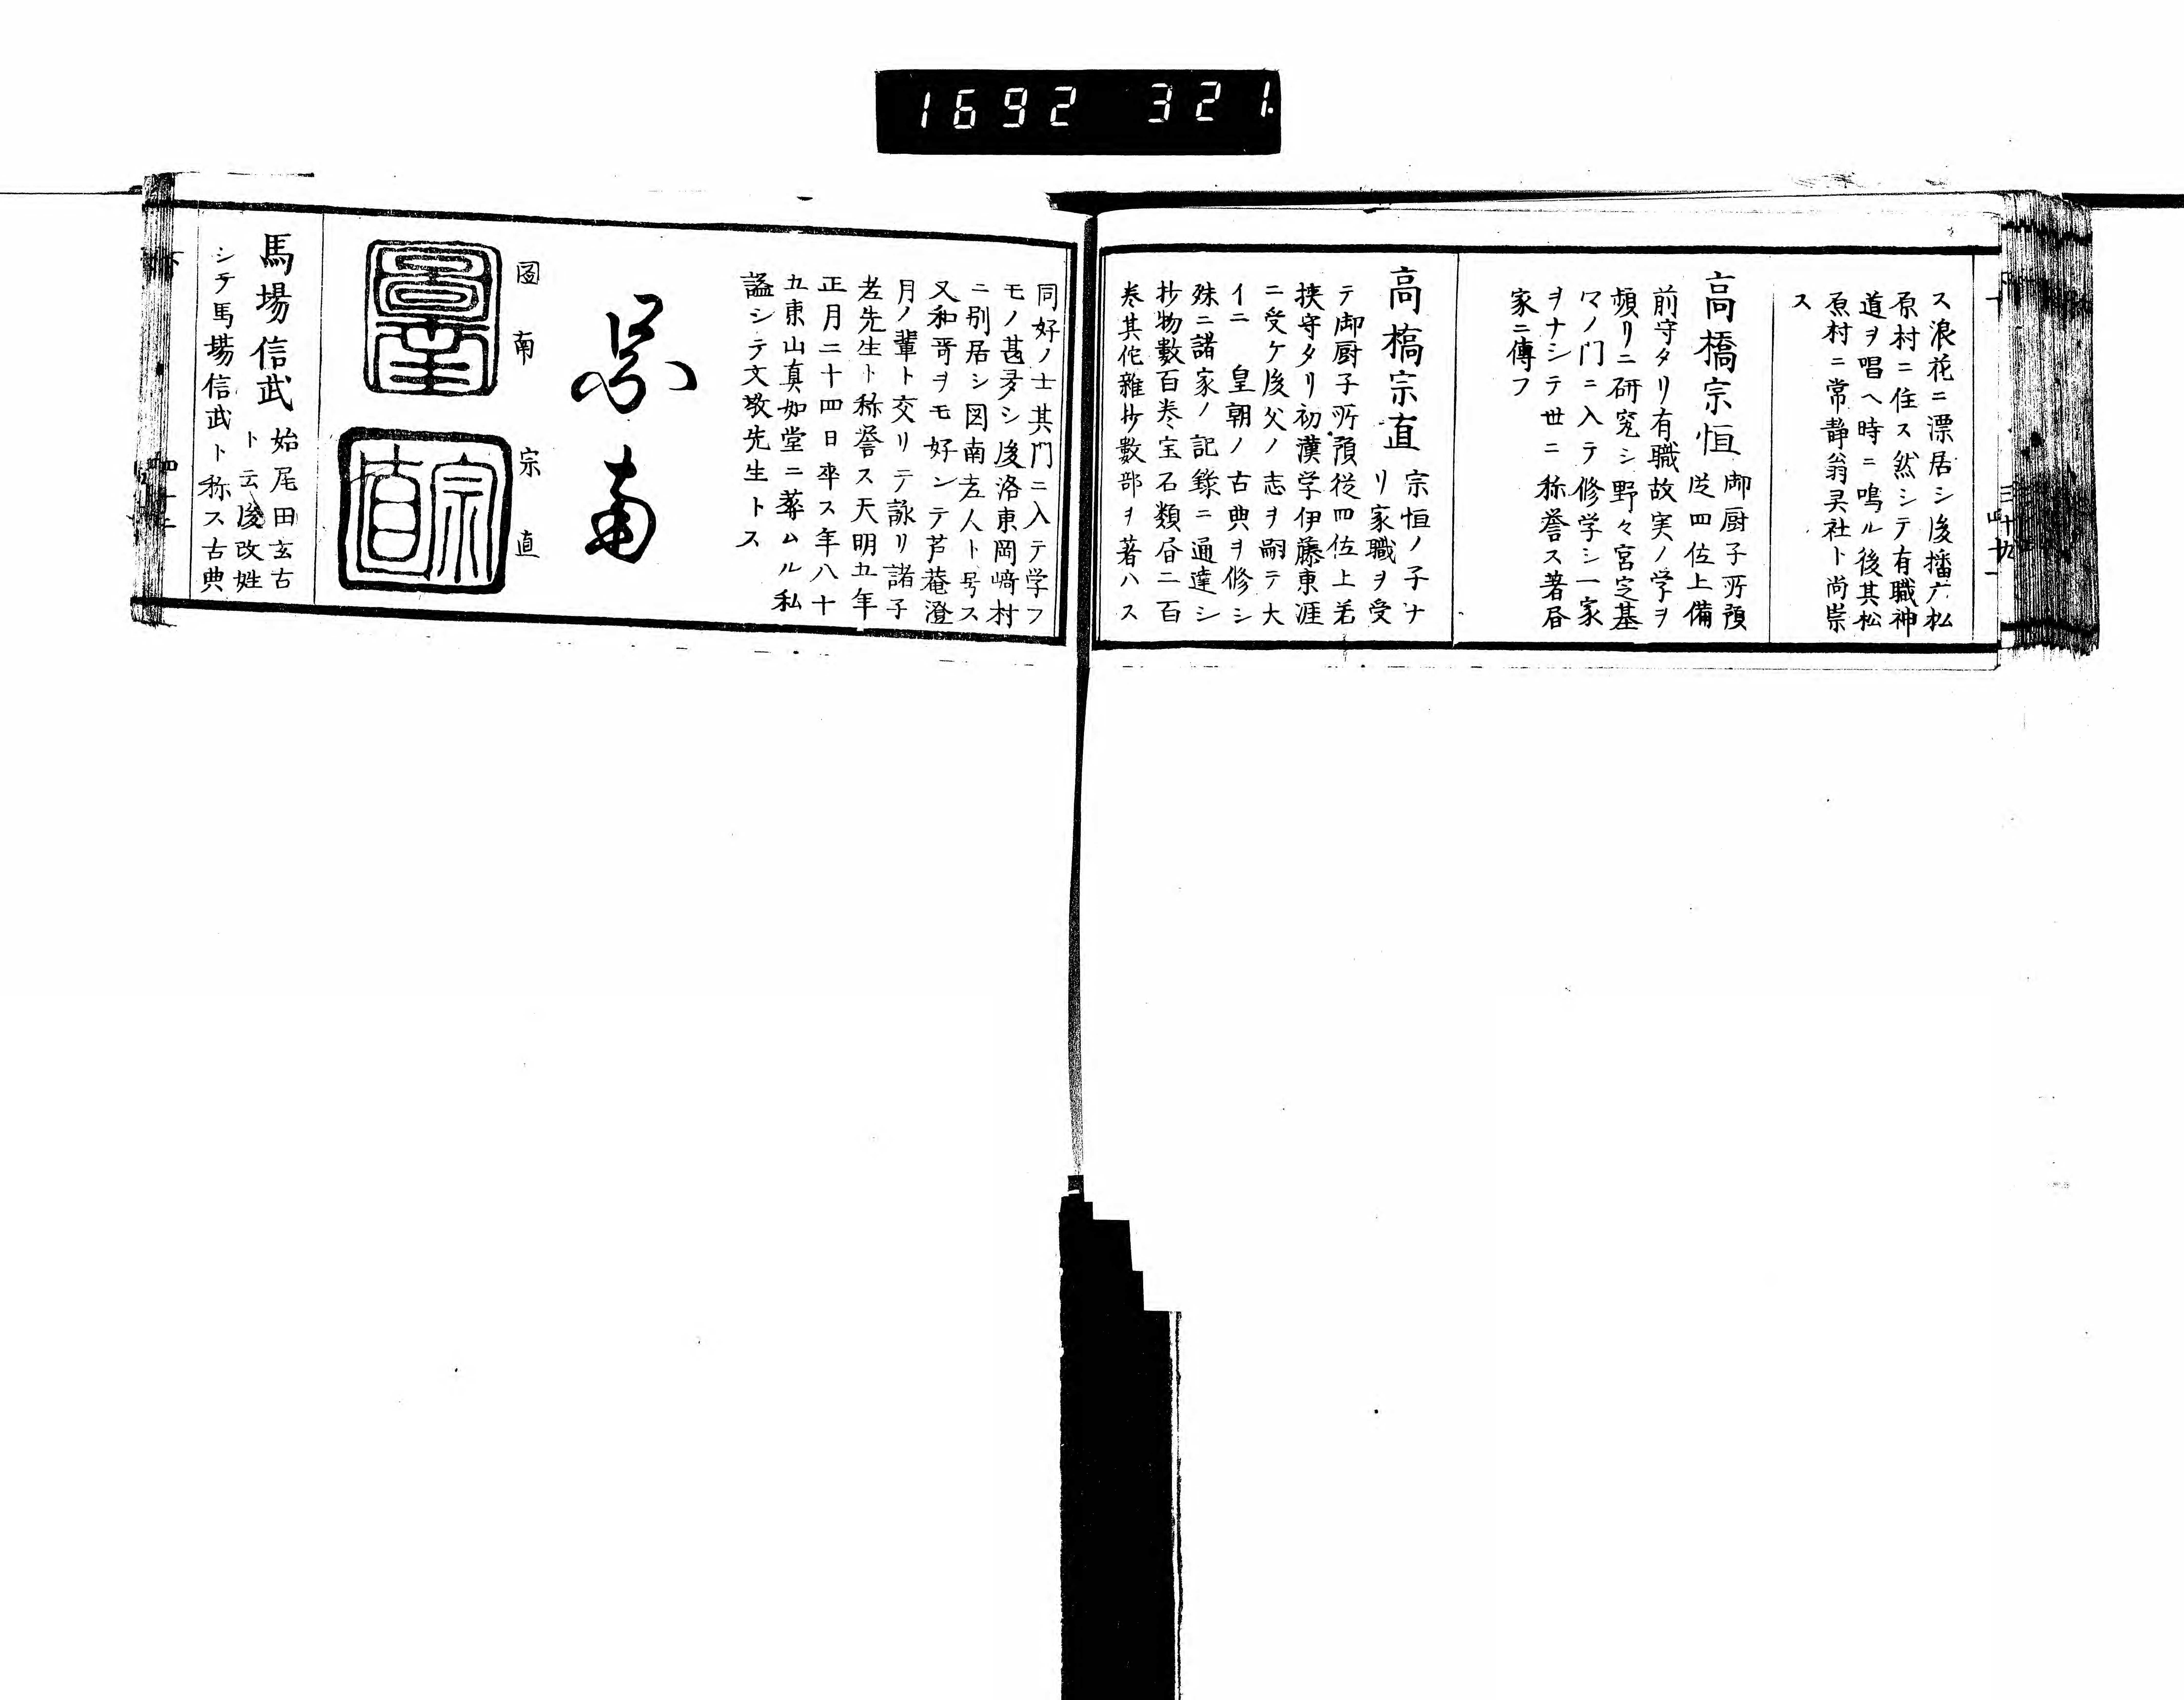 1692 321
ス浪花ニ漂居シ後播广松
原村ニ住ス然シテ有職神
道ヲ唱ヘ時ニ鳴ル後其松
原村ニ常静翁灵社ト尚崇
ス
高橋宗恒 御厨子所預
従四位上備
前守タリ有職故実ノ学ヲ
頻リニ研究シ野々宮定基
マノ門ニ入テ修学シ一家
ヲナシテ世ニ称誉ス著昼
家ニ傳フ
高槗宗直 宗恒ノ子ナ
リ家職ヲ受
テ御厨子所預従四位上若
挾守タリ初漢学伊藤東涯
ニ受ケ後父ノ志ヲ嗣テ大
イニ 皇朝ノ古典ヲ修シ
殊ニ諸家ノ記錄ニ通達シ
抄物數百巻宝石類昼二百
巻其佗雜抄數部ヲ著ハス
同好ノ士其門ニ入テ学フ
モノ甚夛シ後洛東岡﨑村
ニ别居シ図南老人ト号ス
又和哥ヲモ好ンテ芦菴澄
月ノ輩ト交リテ詠リ諸子
老先生ト称誉ス天明五年
正月二十四日卒ス年八十
五東山真如堂ニ葬ムル私
謚シテ文敬先生トス
図南
図南
宗直
圖南
宗直
馬場信武 始尾田玄古
ト云後改姓
シテ馬場信武ト称ス古典